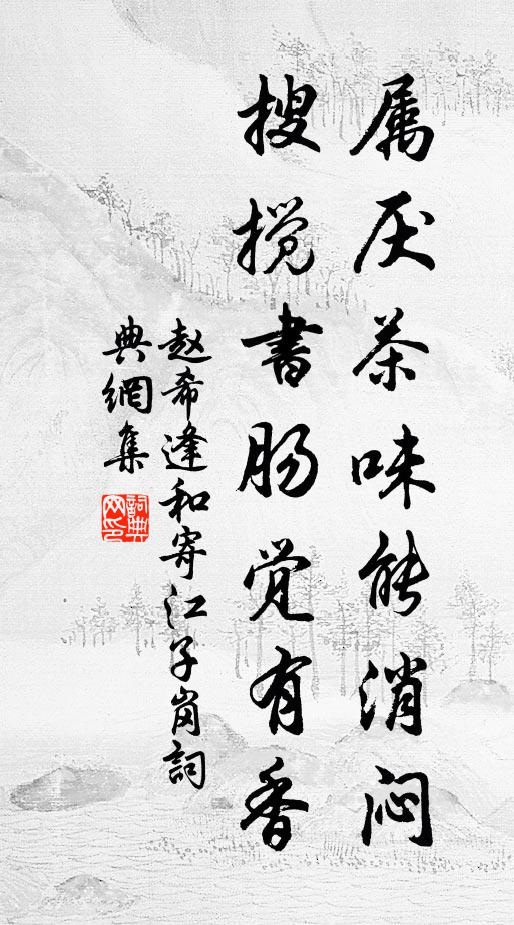 属厌茶味能消闷
搜搅書肠觉有香
赵希逢和寄江子岗詞
典網集
詞典
网印